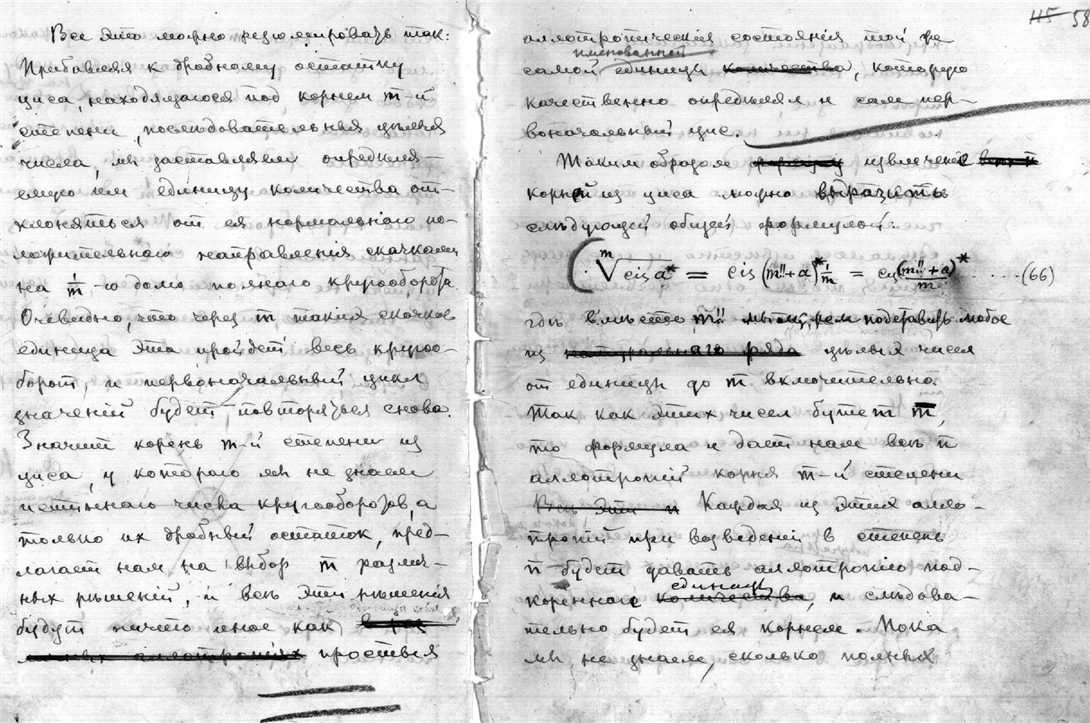 Все это можно резюмировать так:
Прибавляя к дробному остатку
циса, находящагося под корнем m-й
степени, последовательныя целыя
числа, мы заставляем определя-
емую им единицу количества от-
клоняться от ея нормальнаго по-
ложительнаго направленія скачками
на 1/m-ю долю полнаго кругооборота.
Очевидно, что через m таких скачков
единица эта пройдет весь круго-
оборот, и первоначальный цикл
значеній будет повторяться снова.
Значит корень m-й степени из
циса, у котораго мы не знаем
истиннаго числа кругооборотов, а
только их дробный остаток, пред-
лагает нам на выбор m различ-
ных решеній, и все эти решенія
будут ничто иное как
простыя
115 58
аллотропическія состоянія той же
именованной
самой единицы количества, которую
качественно определял и сам пер-
воначальный цис.
Таким образом извлеченіе
корней из циса можно выразить
следующей общей формулой:
m√cis a* = cis (m!!+a)* 1/m = cis ((m!!+a)/m)* ····· (66)
где вместо m!! мы можем подставить любое
из натуральнаго ряда целых чисел
от единицы до m включительно.
Так как этих чисел будет m,
то формула и даст нам все m
аллотропій корня m-й степени
Все эти m Каждая из этих алло-
тропій при возведеніи в степень
m будет давать аллотропію под-
единицы
кореннаго количества, и следова-
тельно будет ея корнем. Пока
мы не знаем, сколько полных